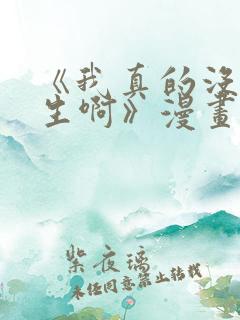 《我真的没
生啊》漫画
紫夜璃
未经同意禁止转载